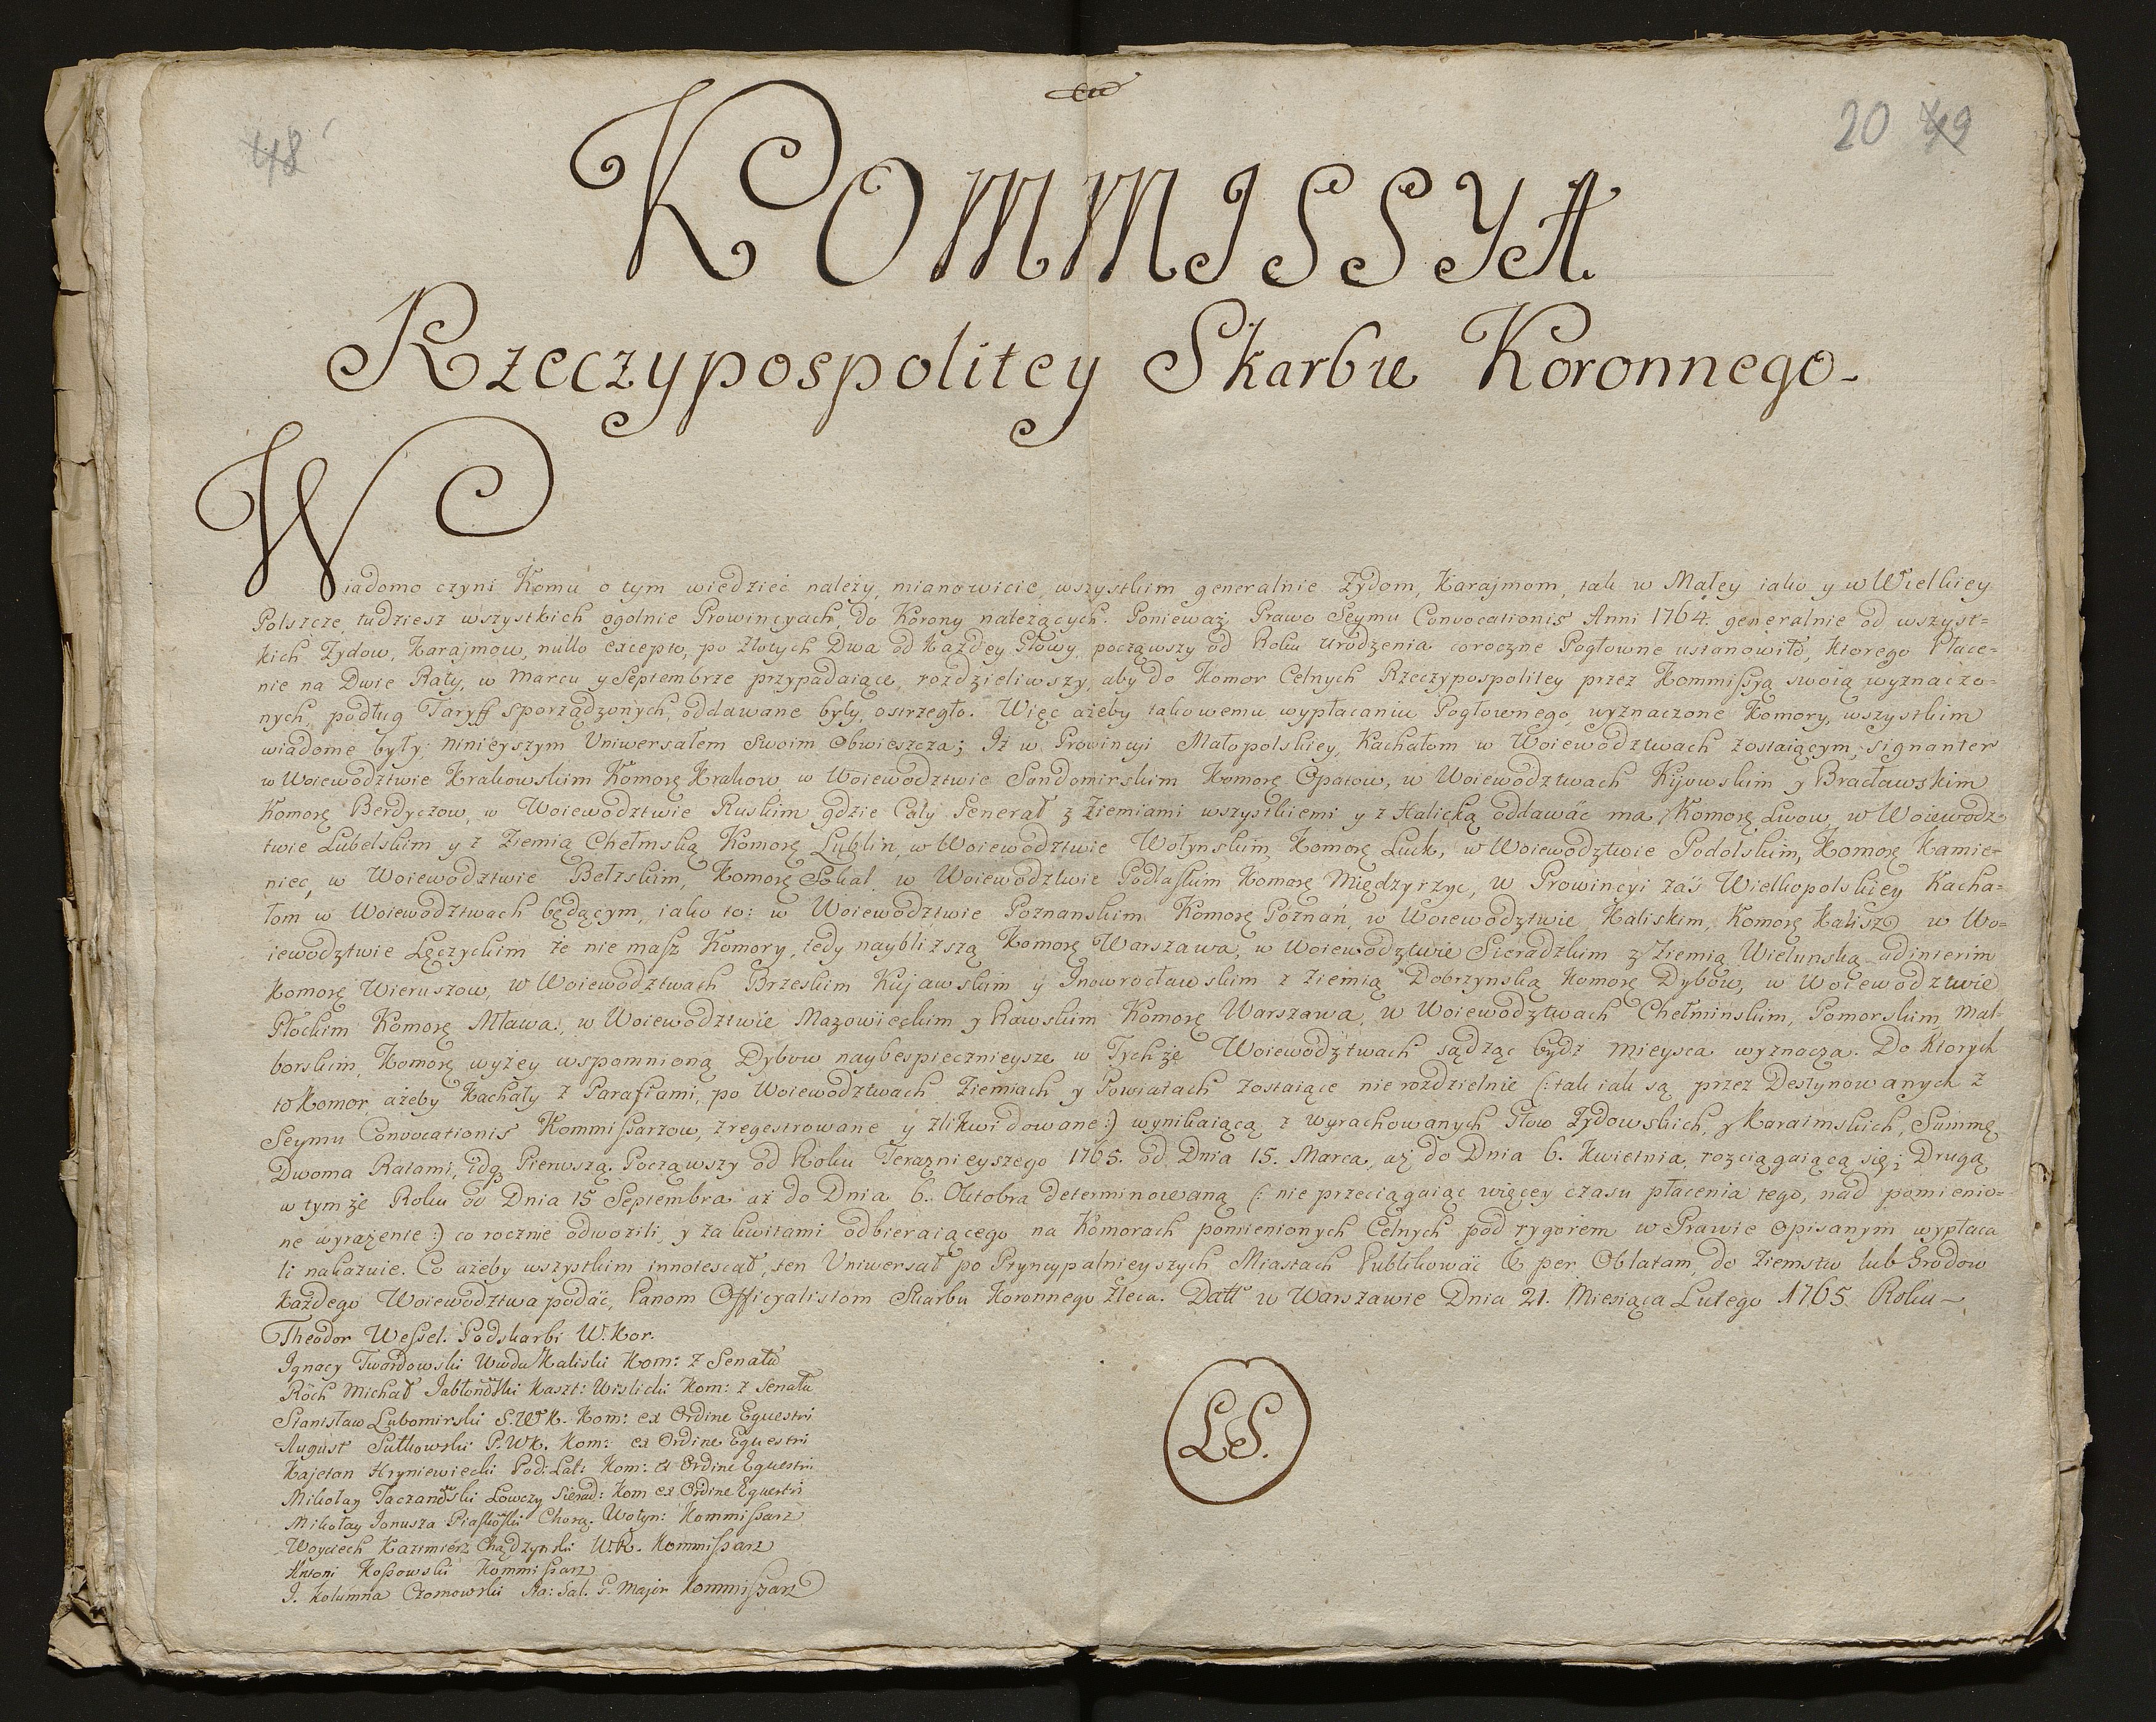 48
20 49
KOMMISSYA
Rzeczypospolitey Skarbu Koronnego.
Wiadomo czyni Komu o tym wiedzieć należy, mianowicie, wszystkim generalnie Żydom, Karajmom, tak w Małey iako y w Wielkiey
Polszcze, tudziesz wszystkich ogolnie Prowincyach, do Korony należących. Ponieważ Prawo Seymu Convocationis Anni 1764. generalnie od wszyst=
kich Żydow, Karajmow, nullo excepto, po Złotych Dwa od Każdey Głowy, począwszy od Roku urodzenia coroczne Pogłowne ustanowiło, Ktorego Płace=
nie na Dwie Raty, w Marcu y Septembrze przypadaiące, rozdzieliwszy, aby do Komor Celnych Rzeczypospolitey przez Kommissyą swoią wyznaczo=
nych, podług Taryff sporządzonych, oddawane były, ostrzegło. Więc ażeby takowemu wypłacaniu Pogłownego, wyznaczone Komory, wszystkim
wiadome były, ninieyszym Uniwersałem Swoim Obwieszcza; Iż w Prowincyi Małopolskiey, Kachałom w Woiewodztwach zostaiącym, signanter
w Woiewodztwie Krakowskim Komorę Krakow, w Woiewodztwie Sandomirskim Komorę Opatow, w Woiewodztwach Kijowskim y Bracławskim
Komorę Berdyczow, w Woiewodztwie Ruskim gdzie Cały Generał z Ziemiami wszystkiemi y z Halicką oddawać ma, Komorę Lwow, w Woiewodz=
twie Lubelskim y z Ziemią Chełmską Komorę Lublin, w Woiewodztwie Wołynskim, Komorę Luck, w Woiewodztwie Podolskim, Komorę Kamie=
niec, w Woiewodztwie Bełzskim, Komorę Sokal, w Woiewodztwie Podlaskim Komorę Międzyrzyc, w Prowincyi zaś Wielkopolskiey Kacha=
łom w Woiewodztwach będącym, iako to: w Woiewodztwie Poznanskim Komorę Poznań, w Woiewodztwie Kaliskim, Komorę Kalisz, w Wo=
iewodztwie Łęczyckim że nie masz Komory, tedy naybliższą Komorę Warszawa, w Woiewodztwie Sieradzkim z Ziemią Wielunską adinterim
Komorę Wieruszow, w Woiewodztwach Brzeskim Kujawskim y Inowrocławskim z Ziemią Dobrzynską Komorę Dybow, w Woiewodztwie
Płockim Komorę Mława, w Woiewodztwie Mazowieckim y Rawskim Komorę Warszawa, w Woiewodztwach Chełminskim, Pomorskim, Mal=
borskim, Komorę wyżey wspomnioną Dybow naybespiecznieysze w Tychże Woiewodztwach sądząc bydź mieysca wyznacza. Do Ktorych
to Komor, ażeby Kachały z Parafiami, po Woiewodztwach, Ziemiach y Powiatach zostaiące nierozdzielnie (: tak iak są przez Destynowanych z
Seymu Convocationis Kommissarzow, zregestrowane y zlikwidowane :) wynikaiącą z wyrachowanych Głow Żydowskich, y Karaimskich, Summę
Dwoma Ratami, idq Pierwszą. Począwszy od Roku Teraznieyszego 1765. od Dnia 15. Marca, aż do Dnia 6. Kwietnia, rozciągaiącą się; Drugą
w tymże Roku od Dnia 15 Septembra aż do Dnia 6. Oktobra determinowaną (: nie przeciągaiąc więcey czasu płacenia tego, nad pomienio=
ne wyrażenie :) co rocznie odwozili, y za kwitami odbieraiącego na Komorach pomienionych Celnych pod rygorem w Prawie Opisanym wypłaca
li nakazuie. Co ażeby wszystkim innotescat, ten Uniwersał po Pryncypalnieyszych Miastach Publikować & per Oblatam, do Ziemstw lub Grodow
Każdego Woiewodztwa podać, Panom Officyalistom Skarbu Koronnego Zleca. Datt w Warszawie Dnia 21. Miesiąca Lutego 1765. Roku
Theodor Wessel. Podskarbi W. Kor.
Ignacy Twardowski Wwda Kaliski Kom: z Senatu
Roch Michał Jabłonowski Kaszt: Wislicki Kom: z Senatu
Stanisław Lubomirski S. W. K. Kom: ex Ordine Equestri
August Sułkowski P. WK. Kom: ex Ordine Equestri
Kajetan Hryniewiecki Kom: ex Ordine Equestri
Mikołay Taczanowski Łowczy Sierad: Kom ex Ordine Equestri
Mikołay Janusza Piaskowski Chorą. Wołyn: Kommissarz
Woyciech Kazimierz Chądzynski W.R. Kommissarz
Antoni Kossowski Kommissarz
I. Kolumna Czosnowski Major Kommissarz
LS.